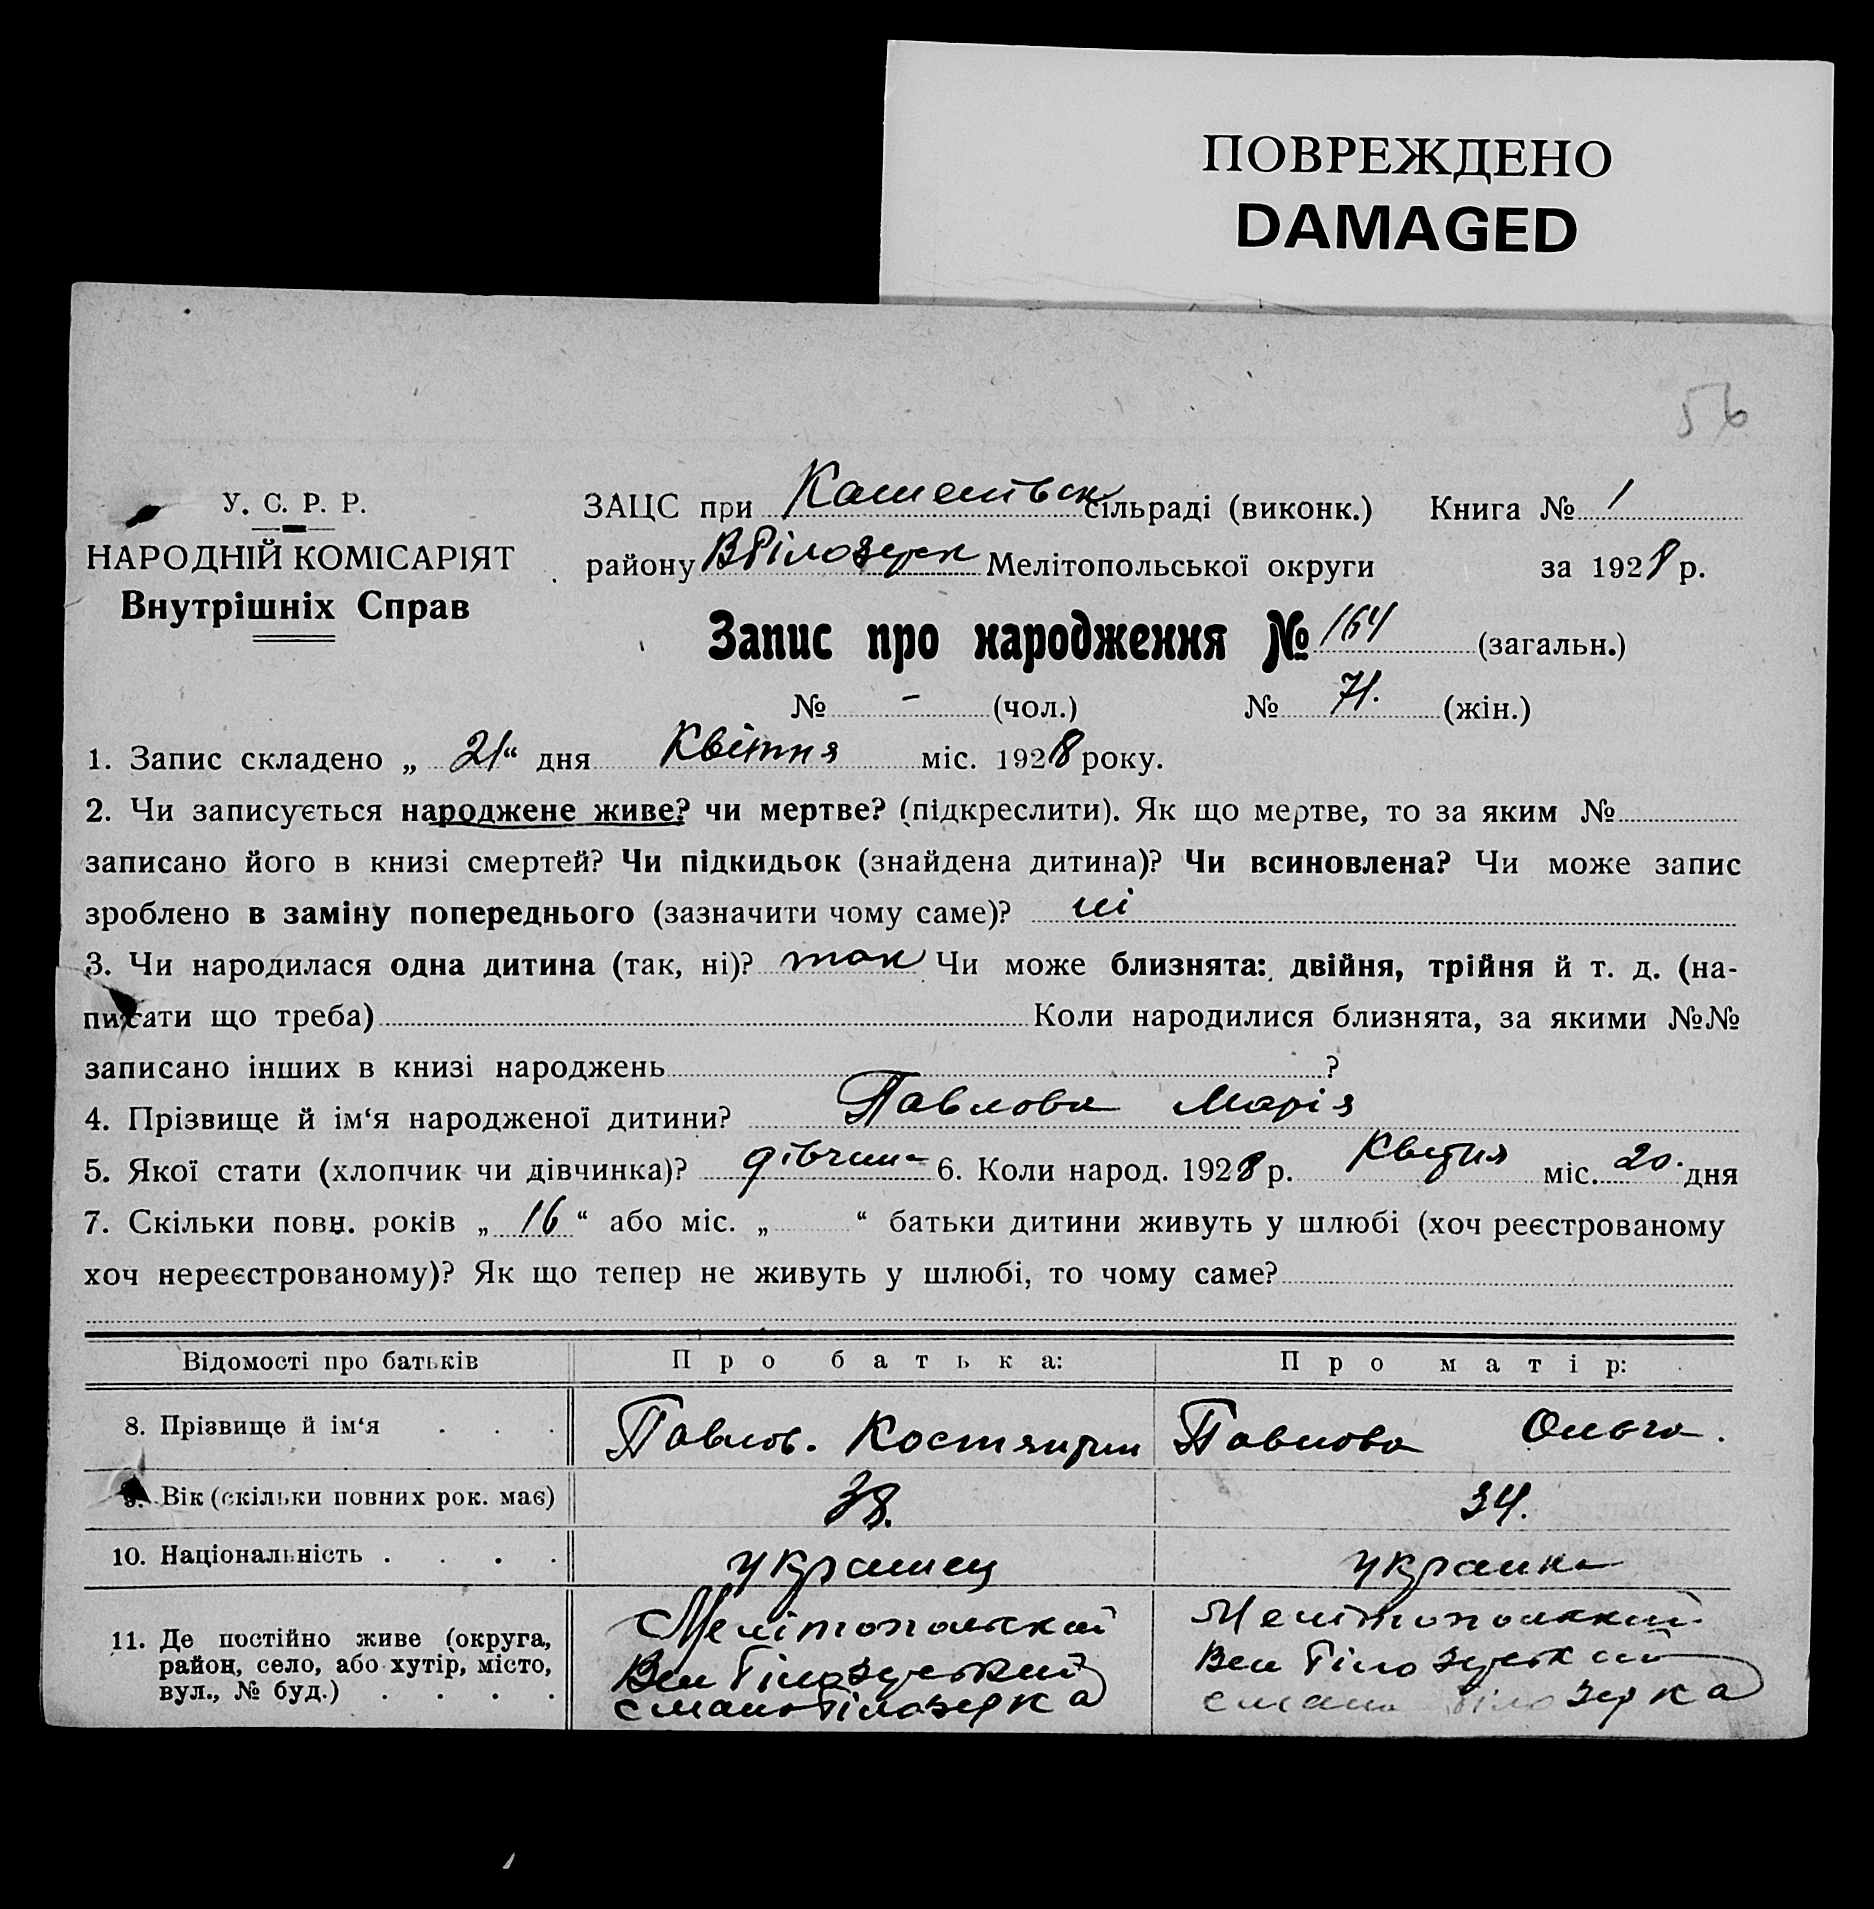 ПОВРЕЖДЕНО
DAMAGED
56
У. С. Р. Р.
НАРОДНІЙ КОМІСАРІЯТ
Внутрішніх Справ
ЗАЦС при сільраді (виконк.) Книга № 1
району ВБілозерк Мелітопольської округи за 1928 р.
Запис про народження № 164 (загальн.)
№ - (чол.) № 71. (жін.)
1. Запис складено „ 21 “ дня Квітня міс. 1928 року.
2. Чи записується народжене живе? чи мертве? (підкреслити). Як що мертве, то за яким №
записано його в книзі смертей? Чи підкидьок (знайдена дитина)? Чи всиновлена? Чи може запис
зроблено в заміну попереднього (зазначити чому саме)? ні
3. Чи народилася одна дитина (так, ні)? так Чи може близнята: двійня, трійня й т. д. (на-
писати що треба) Коли народилися близнята, за якими №№
записано інших в книзі народжень ?
4. Прізвище й ім‘я народженої дитини? Павлова Марія
5. Якої стати (хлопчик чи дівчинка)? дівчина 6. Коли народ. 1928 р. Квітня міс. 20. дня
7. Скільки повн. років „ 16 “ або міс. „ “ батьки дитини живуть у шлюбі (хоч реєстрованому
хоч нереєстрованому)? Як що тепер не живуть у шлюбі, то чому саме?
Відомості про батьків Про батька: Про матір:
8. Прізвище й ім‘я . . . Павлов. Костянтин Павлова Ольга.
9. Вік (скільки повних рок. має) 38. 34.
10. Національність . . . . українец українка
11. Де постійно живе (округа,
район, село, або хутір, місто,
вул., № буд.) . . . .
Мелітопольский
Вел Білозерський
с мало Білозерка
Мелітопольский
Вел Білозерский
с мало Білозерка